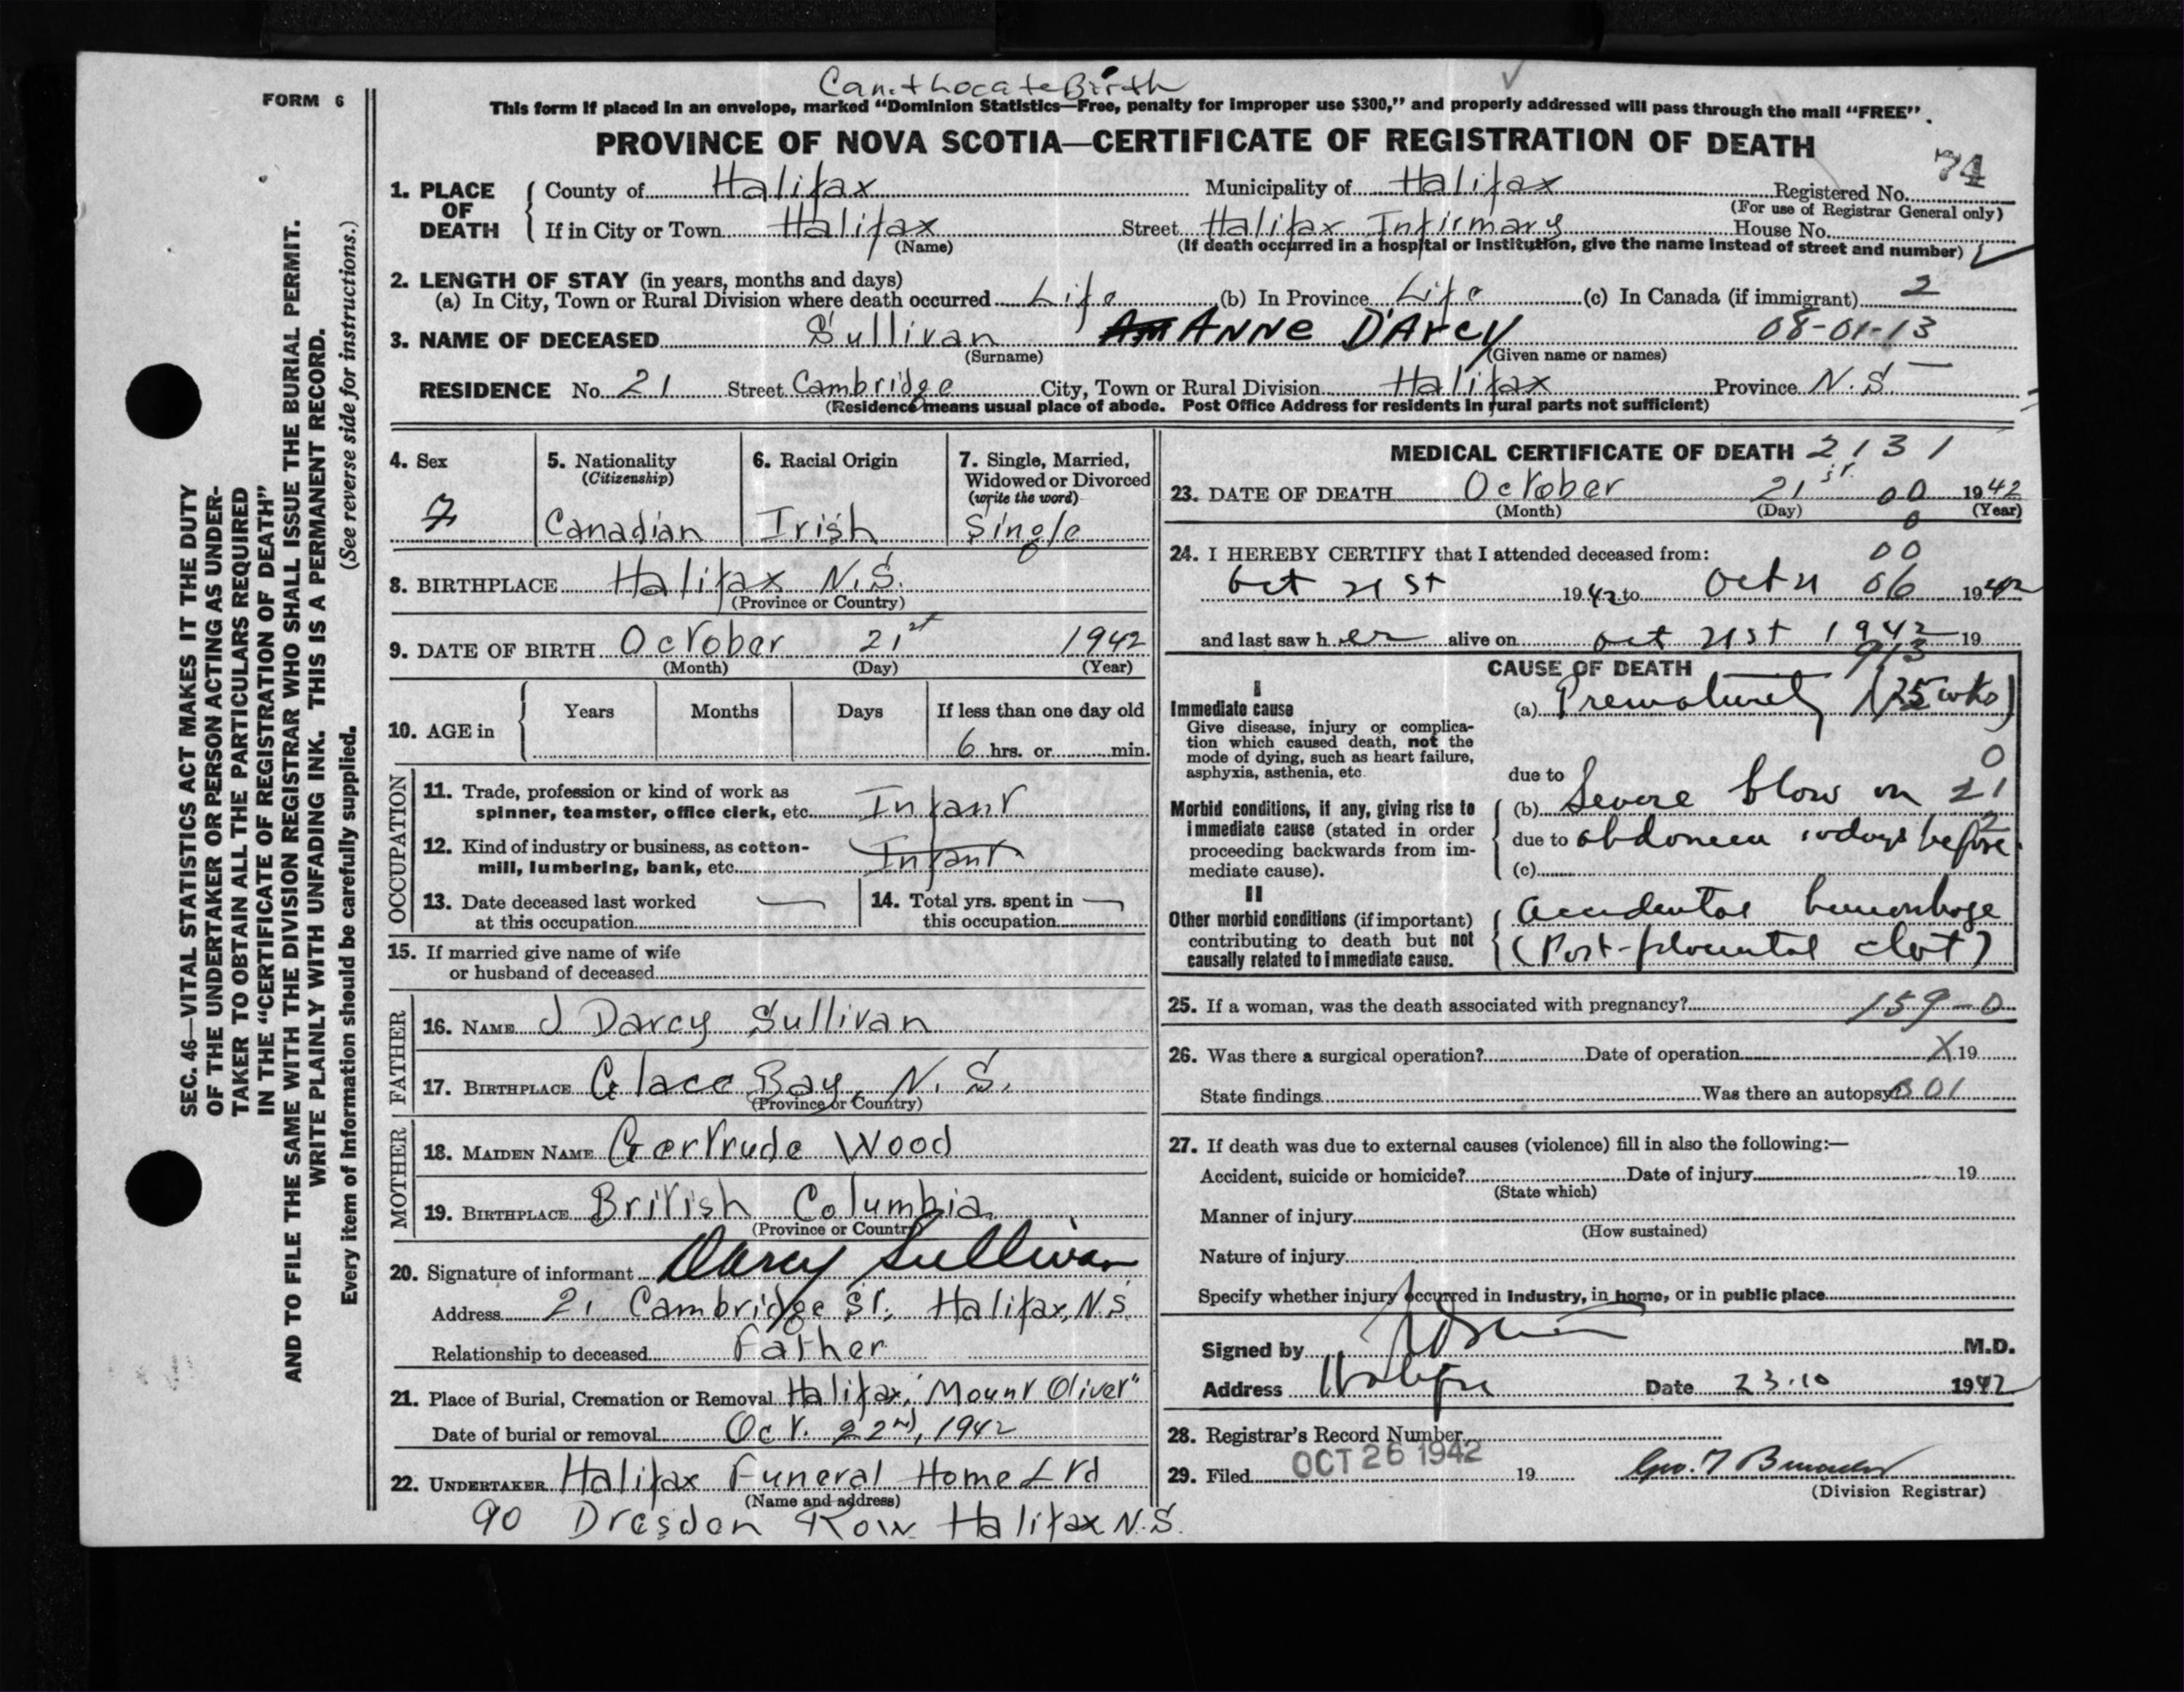 Can.t Locate Birth
FORM 6
This form if placed in an envelope, marked "Dominion Statistics—Free, penalty for improper use $300," and properly addressed will pass through the mail "FREE".
PROVINCE OF NOVA SCOTIA—CERTIFICATE OF REGISTRATION OF DEATH
74
1. PLACE OF DEATH County of Halifax Municipality of Halifax Registered No.
(For use of Registrar General only)
If in City or Town Halifax Street Halifax Infirmary House No.
(Name) (If death occurred in a hospital or institution, give the name instead of street and number)
2. LENGTH OF STAY (in years, months and days)
(a) In City, Town or Rural Division where death occurred Life (b) In Province Life (c) In Canada (if immigrant) 2
3. NAME OF DECEASED Sullivan ANNE D'ARCY 08-01-13
(Surname) (Given name or names)
RESIDENCE No. 21 Street Cambridge City, Town or Rural Division Halifax Province N.S.
(Residence means usual place of abode. Post Office Address for residents in rural parts not sufficient)
4. Sex
F
5. Nationality
(Citizenship)
Canadian
6. Racial Origin
Irish
7. Single, Married,
Widowed or Divorced
(write the word)
Single
8. BIRTHPLACE Halifax N.S.
(Province or Country)
9. DATE OF BIRTH October 21st 1942
(Month) (Day) (Year)
10. AGE in Years Months Days If less than one day old
6 hrs. or min.
OCCUPATION
11. Trade, profession or kind of work as
spinner, teamster, office clerk, etc. Infant
12. Kind of industry or business, as cotton-
mill, lumbering, bank, etc. Infant
13. Date deceased last worked
at this occupation
14. Total yrs. spent in
this occupation
15. If married give name of wife
or husband of deceased
FATHER
16. NAME J Darcy Sullivan
17. BIRTHPLACE Glace Bay, N.S.
(Province or Country)
MOTHER
18. MAIDEN NAME Gertrude Wood
19. BIRTHPLACE British Columbia
(Province or Country)
20. Signature of informant Darcy Sullivan
Address 21 Cambridge St. Halifax, N.S.
Relationship to deceased Father
21. Place of Burial, Cremation or Removal Halifax, "Mount Olivet"
Date of burial or removal Oct. 22nd, 1942
22. UNDERTAKER Halifax Funeral Home Ltd
(Name and address)
90 Dresden Row Halifax N.S.
MEDICAL CERTIFICATE OF DEATH 2131
23. DATE OF DEATH October 21st 00 1942
(Month) (Day) (Year)
0
24. I HEREBY CERTIFY that I attended deceased from: 00
Oct 21st 1942 to Oct 21 06 1942
and last saw her alive on Oct 21st 1942 19
913
CAUSE OF DEATH
I
Immediate cause
Give disease, injury or complica-
tion which caused death, not the
mode of dying, such as heart failure,
asphyxia, asthenia, etc.
(a) Prematurity (25 wks)
0
due to
Morbid conditions, if any, giving rise to
immediate cause (stated in order
proceeding backwards from im-
mediate cause).
(b) Severe blow on 21
due to abdomen 10 days before
2
(c)
II
Other morbid conditions (if important)
contributing to death but not
causally related to immediate cause.
Accidental hemorrhage
(Post-placental clot)
25. If a woman, was the death associated with pregnancy? 159-0
26. Was there a surgical operation? Date of operation X 19
State findings Was there an autopsy? 01
27. If death was due to external causes (violence) fill in also the following:—
Accident, suicide or homicide? Date of injury 19
(State which)
Manner of injury
(How sustained)
Nature of injury
Specify whether injury occurred in Industry, in home, or in public place
Signed by M.D.
Address Halifax Date 23.10 1942
28. Registrar's Record Number
29. Filed OCT 26 1942 19
(Division Registrar)
SEC. 46—VITAL STATISTICS ACT MAKES IT THE DUTY
OF THE UNDERTAKER OR PERSON ACTING AS UNDER-
TAKER TO OBTAIN ALL THE PARTICULARS REQUIRED
IN THE "CERTIFICATE OF REGISTRATION OF DEATH"
AND TO FILE THE SAME WITH THE DIVISION REGISTRAR WHO SHALL ISSUE THE BURIAL PERMIT.
WRITE PLAINLY WITH UNFADING INK. THIS IS A PERMANENT RECORD.
Every item of information should be carefully supplied. (See reverse side for instructions.)